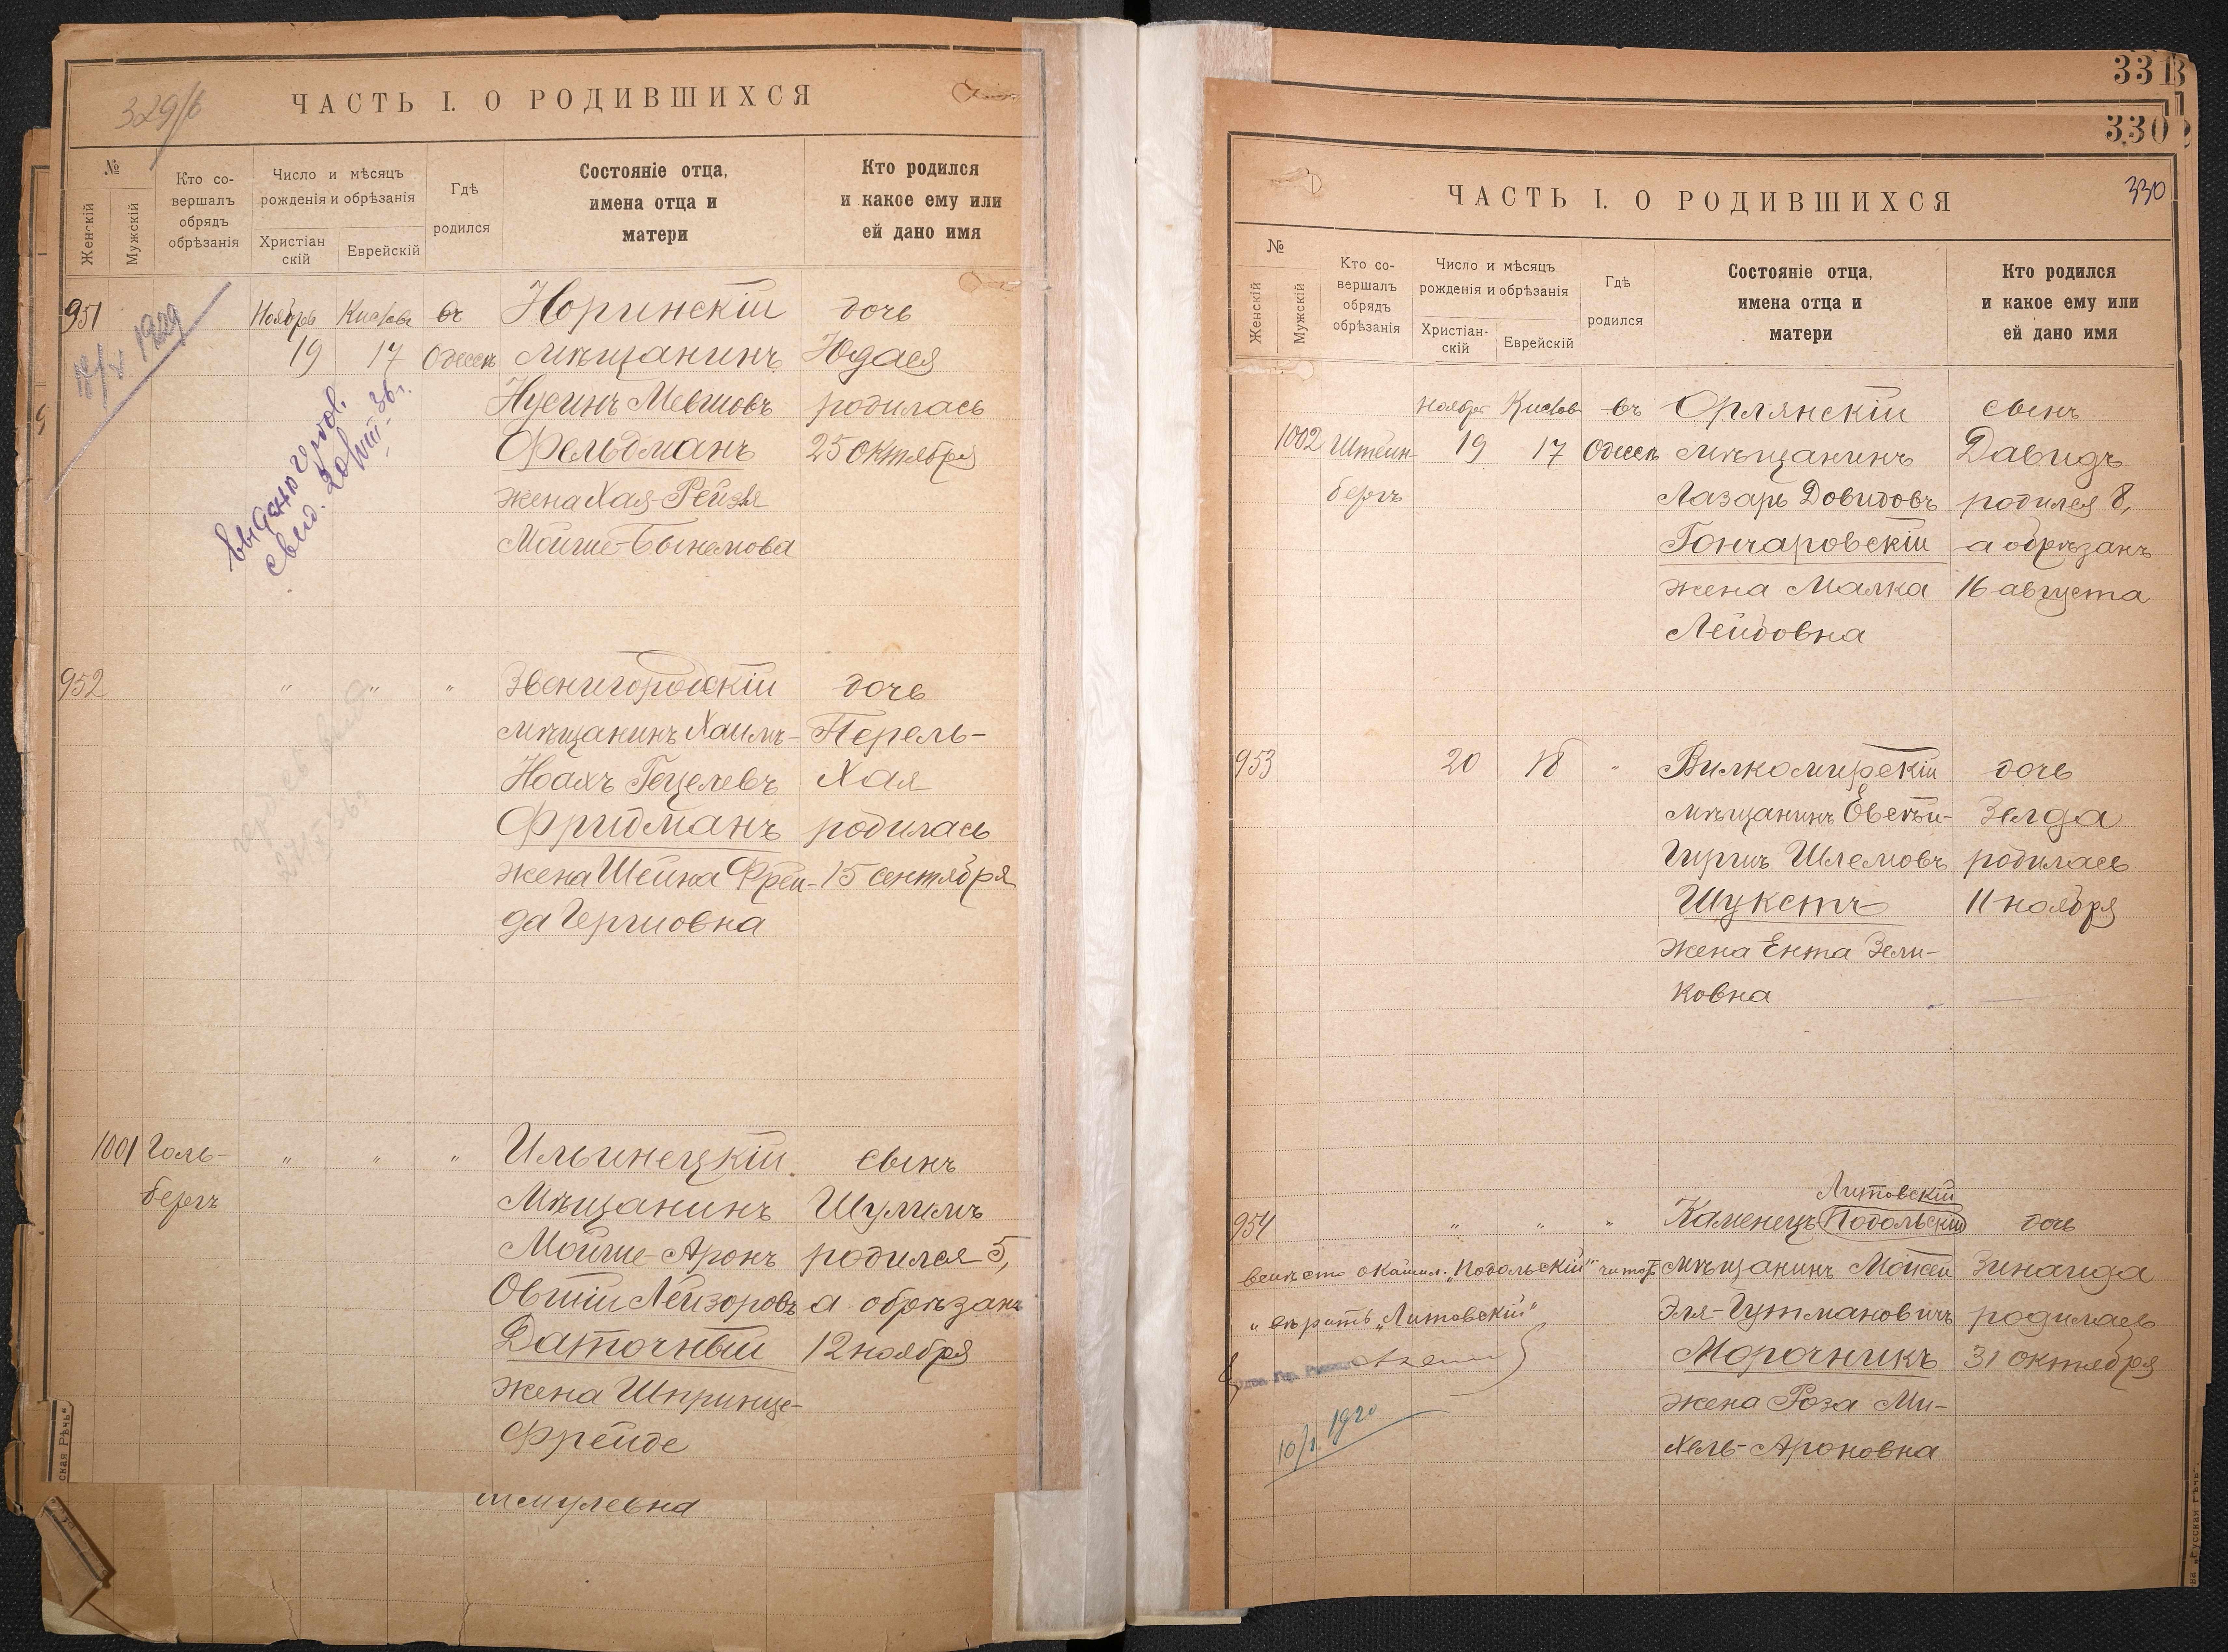 329/б
ЧАСТЬ I. О РОДИВШИХСЯ
№
Женскій
Мужскій
Кто со-
вершалъ
обрядъ
обрѣзанія
Число и мѣсяцъ
рожденія и обрѣзанія
Христіан
скій
Еврейскій
Гдѣ
родился
Состояніе отца,
имена отца и
матери
Кто родился
и какое ему или
ей дано имя
951 Ноябрь Кислевъ въ Норинскій дочь
19 17 Одессѣ мѣщанинъ Юдася
Нусинъ Мевшовъ родилась
Фельдманъ 25 октября
жена Хая-Рейзя
Мойше-Бынемова
1929
выдано
свид. 20/VIII-36г.
952 " " " Звенигородскій дочь
мѣщанинъ Хаимъ- Перель-
Ноахъ Гецелевъ Хая
Фридманъ родилась
жена Шейна Фрей- 15 сентября
да Гершовна
1001 Голь- " " " Ильинецкій сынъ
бергъ Мѣщанинъ Шулимъ
Мойше-Аронъ родился 5,
Овшій Лейзоровъ а обрѣзанъ
Даточный 12 ноября
жена Шпринце-
Фрейде
ская Рѣчь".
331
330
330
ЧАСТЬ I. О РОДИВШИХСЯ
№
Женскій
Мужскій
Кто со-
вершалъ
обрядъ
обрѣзанія
Число и мѣсяцъ
рожденія и обрѣзанія
Христіан-
скій
Еврейскій
Гдѣ
родился
Состояніе отца,
имена отца и
матери
Кто родился
и какое ему или
ей дано имя
ноябрь Кислев въ Орлянскій сынъ
1002 Штейн- 19 17 Одессѣ мѣщанинъ Давидъ
бергъ Лазарь Довидовъ родился 8,
Гончаровскій а обрѣзанъ
жена Малка 16 августа
Лейбовна
953 20 18 " Вилкомирскій дочь
мѣщанинъ Овсѣй- Зелда
Гиршъ Шлемовъ родилась
Шукстъ 11 ноября
жена Ента Зели-
ковна
Литовскій
954 " " " Каменецъ Подольскій дочь
мѣщанинъ Мойсей Зинаида
Эля-Гутмановичъ родилась
Морочникъ 31 октября
жена Роза Ми-
хель-Ароновна
вмѣсто "Подольскій"
вѣрить "Литовскій"
10/I. 1920